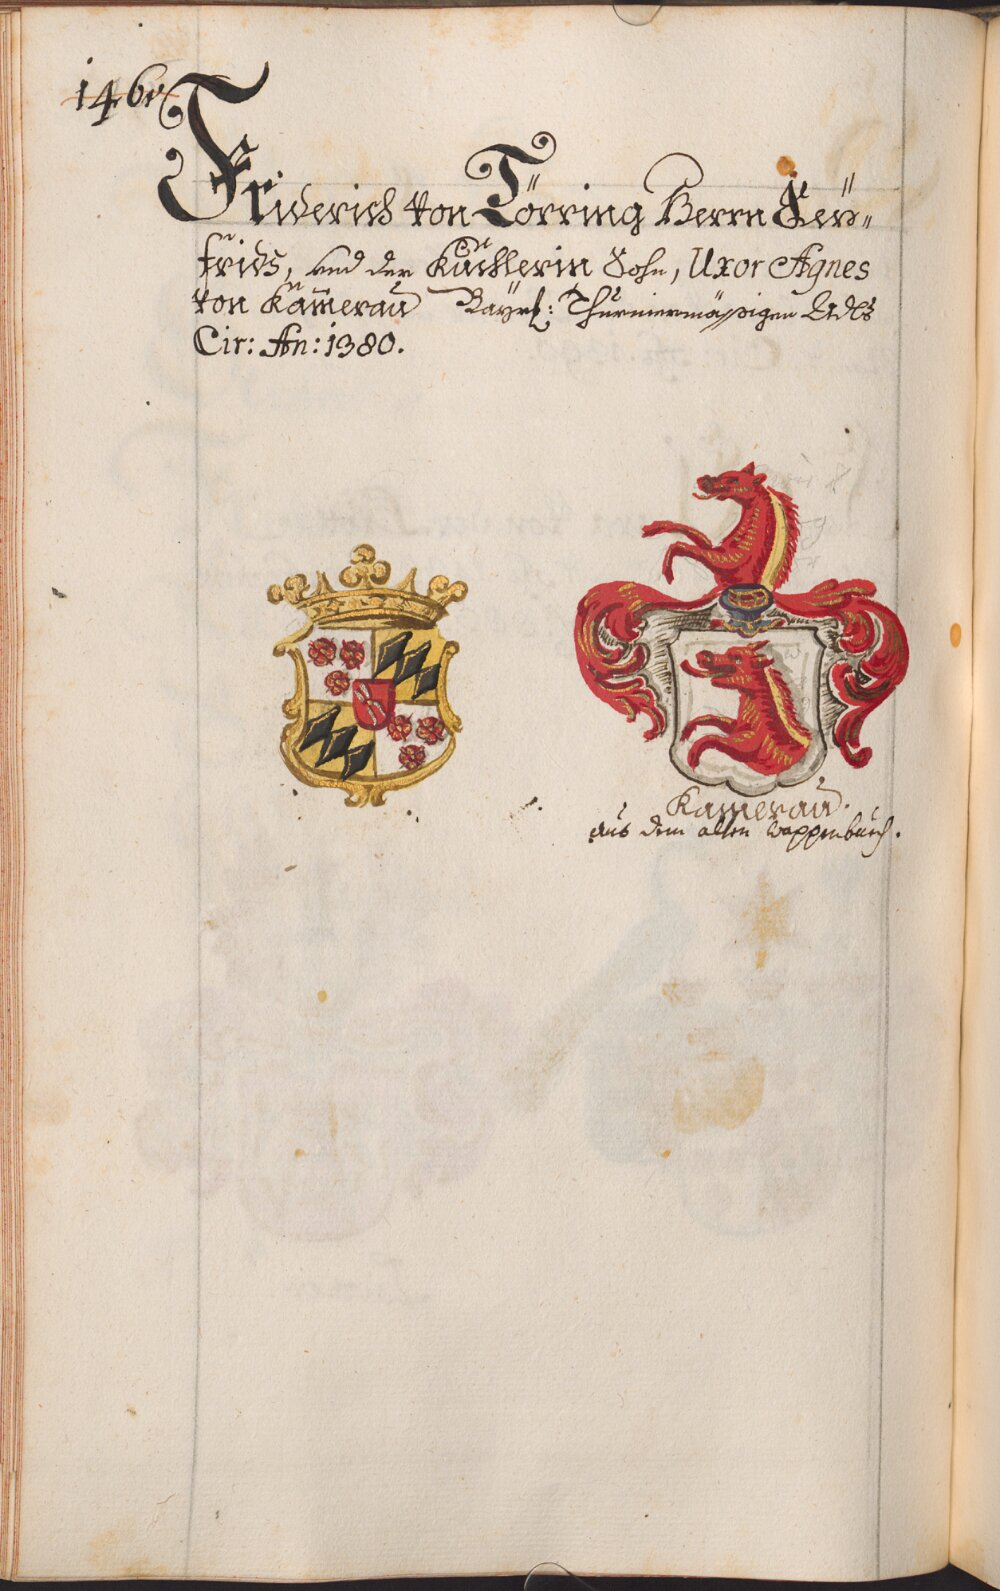 146v
Friderich von Törring Herrn Seÿ„
frids, und der Küchlerin Sohn, Uxor Agnes
von Kämeraŭ Baÿrl: Thurniermäßigen Adls
Cir: An: 1380.
Kameraŭ.
aus dem alten wappenbuch.